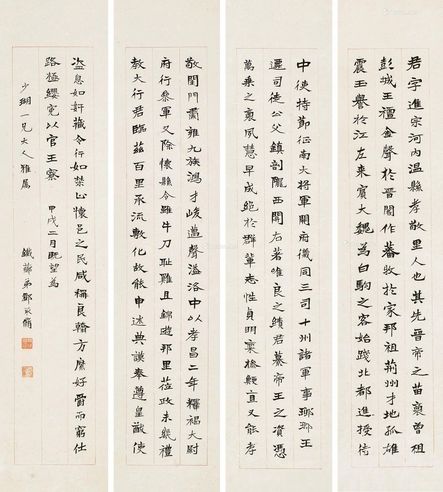 君字進宗河內溫縣孝敬里人也其先晉帝之苗裔曾祖
彭城王權金聲於晉閣作蕃牧於家邦祖荊州才地孤雄
震玉譽於江左來賓大魏為白駒之客始踐北都進授侍
中使持節征南大將軍開府儀同三司十州諸軍事琅琊王
遷司徒公父鎮剖隴西開右著唯良之績君藉帝王之資憑
萬乘之裔夙慧早成絕於群輩志性貞明稟操鯁直又能孝
敬閨門肅雍九族鴻才峻邁聲溢洛中以孝昌二年釋褐太尉
府行參軍又除懷縣令雖牛刀耻雞且錦遊那里莅政未幾禮
教大行君臨茲百里承流敷化故能申述典謨奉遵皇猷使
盜息如奸藏令行如禁止懷邑之民咸稱良翰方廌好爵而窮仕
路極纓冕以官王寮 甲戌二月既望為
少瑚一兄大人雅屬 鐵 弟鄧